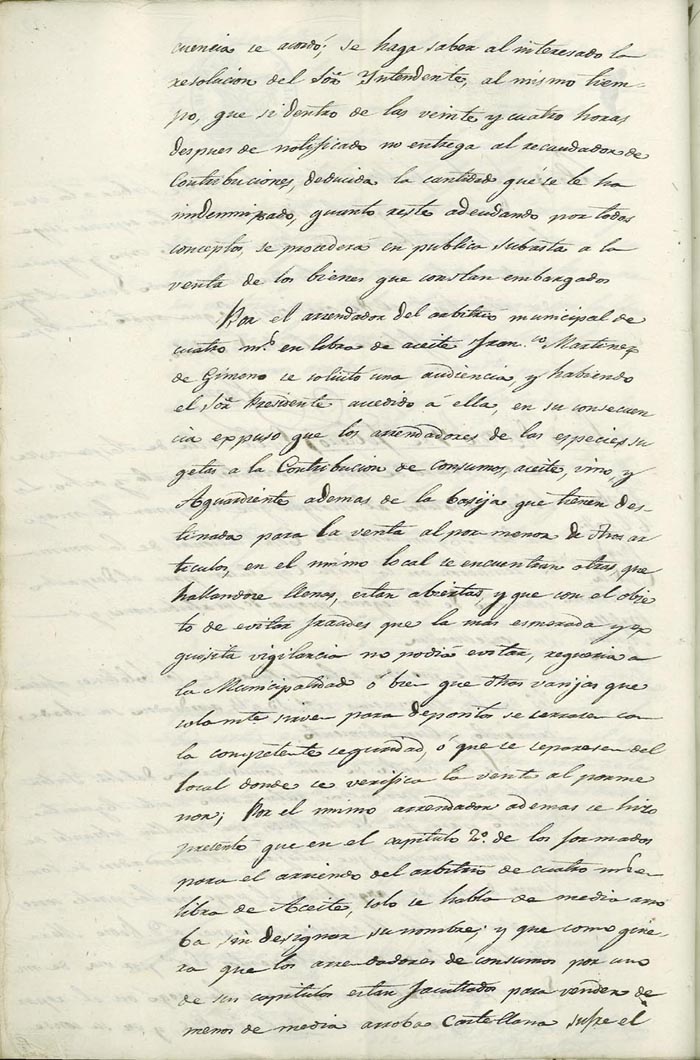 cuencia se acordó; se haga saber al interesado la
resolucion del Sor. Yntendente, al mismo tiem-
po, que si dentro de las veinte y cuatro horas
despues de notificado no entrega al recaudador de
Contribuciones, deducida la cantidad que se le ha
indemnizado, quanto reste adeudando por todos
conceptos, se procederá en publica subasta a la
venta de los bienes que constan embargados
Por el arrendador del arbitrio municipal de
cuatro mrs. en libra de aceite Fran.co Martinez
de Gimeno se solicitó una audiencia, y habiendo
el Sor. Presidente accedido á ella, en su consecuen
cia expuso que los arrendadores de las especies su
getas a la Contribucion de consumos, aceite, vino, y
Aguardiente ademas de la basija que tienen des-
tinada para la venta al por menor de dhos ar
ticulos, en el mismo local se encuentran otras, que
hallandose llenas, estan abiertas, y que con el obje
to de evitar fraudes que la mas esmerada y ex
quisita vigilancia no podia evitar, requeria a
la Municipalidad ó bien que otras vasijas que
solamte. sirven para depositos se cerrasen con
la competente seguridad, ó que se separasen del
local donde se verifica la venta al porme
nor; Por el mismo arrendador ademas se hizo
presente que en el capitulo 2o. de los formados
para el arriendo del arbitrio de cuatro mrs. en
libra de Aceite, solo se habla de media arro
ba sin designar su nombre; y que como quie-
ra que los arrendadores de consumos por uno
de sus capitulos estan facultados para vender de
menos de media arroba Castellana sufre el